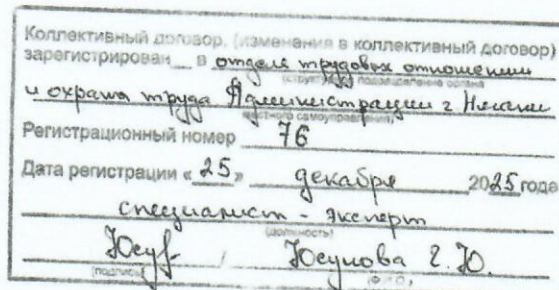 Коллективный договор, (изменения в коллективный договор)
зарегистрирован__ в отделе трудовых отношений
(структурное подразделение органа
и охраны труда Администрации г. Нягани
местного самоуправления)
Регистрационный номер 76
Дата регистрации «25» декабря 2025 года
специалист - эксперт
(должность)
Юсуf / Юсупова Г.Ю.
(подпись) (Ф.И.О.)